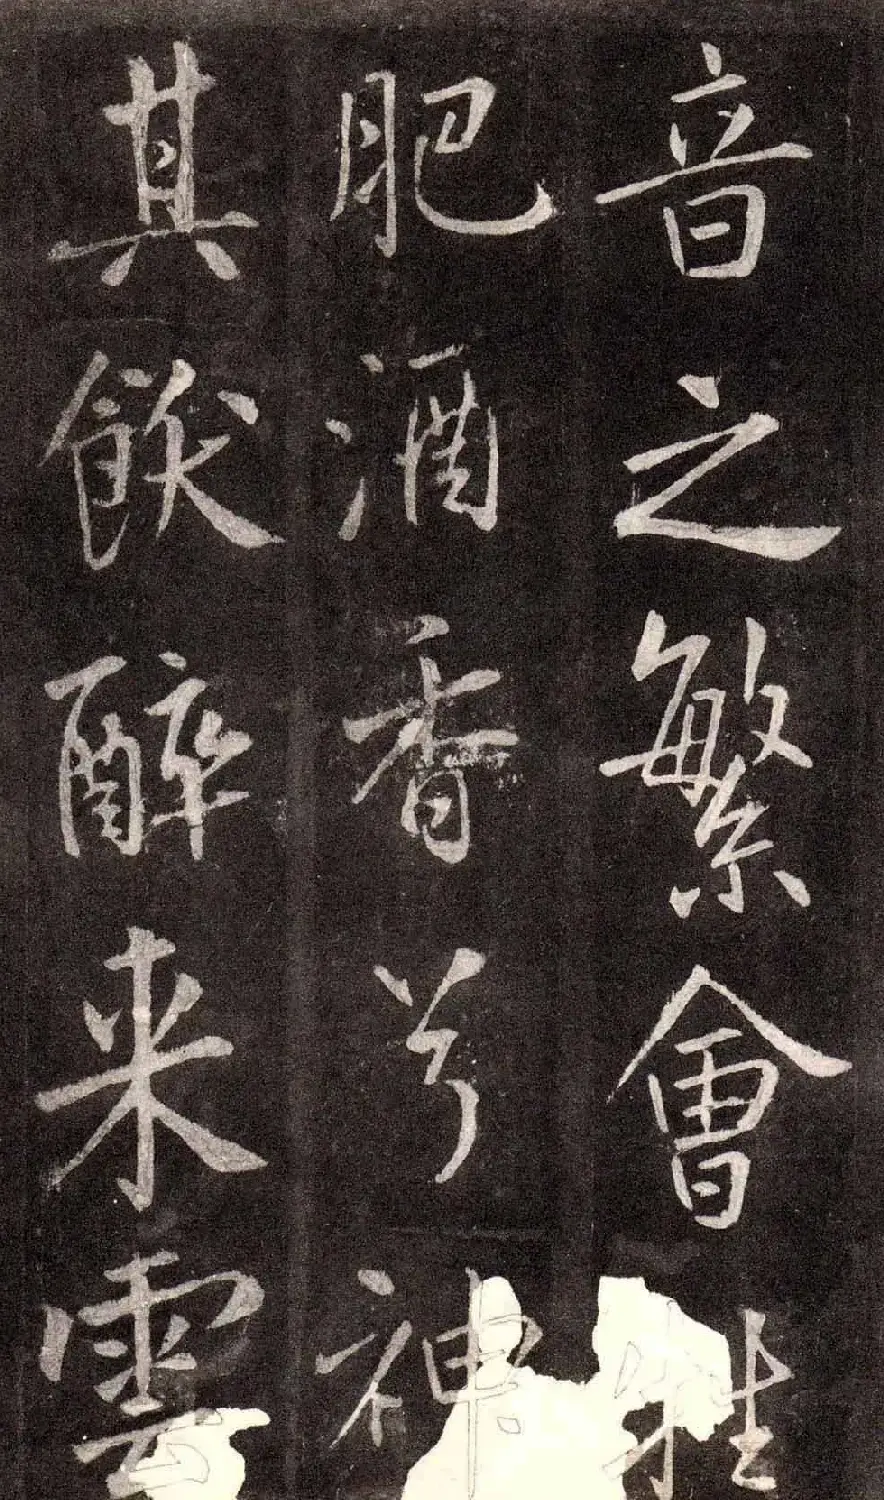 音之繁會牲
肥酒香兮神
其飫醉来雲